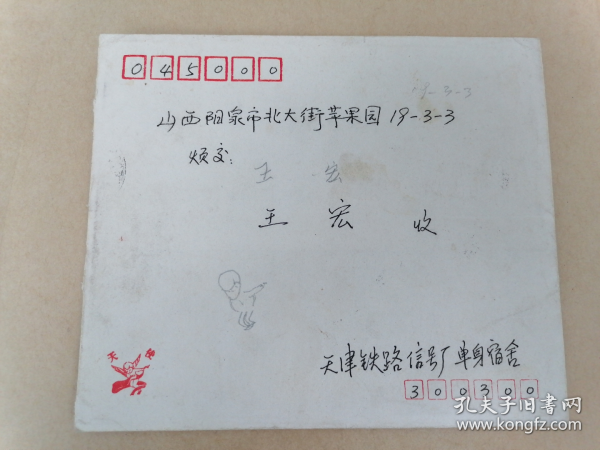 045000
19-3-3
山西阳泉市北大街苹果园19-3-3
烦交:
王 宏
王 宏 收
天津
天津铁路信号厂单身宿舍
300300
孔夫子旧书网
www.kongfz.com